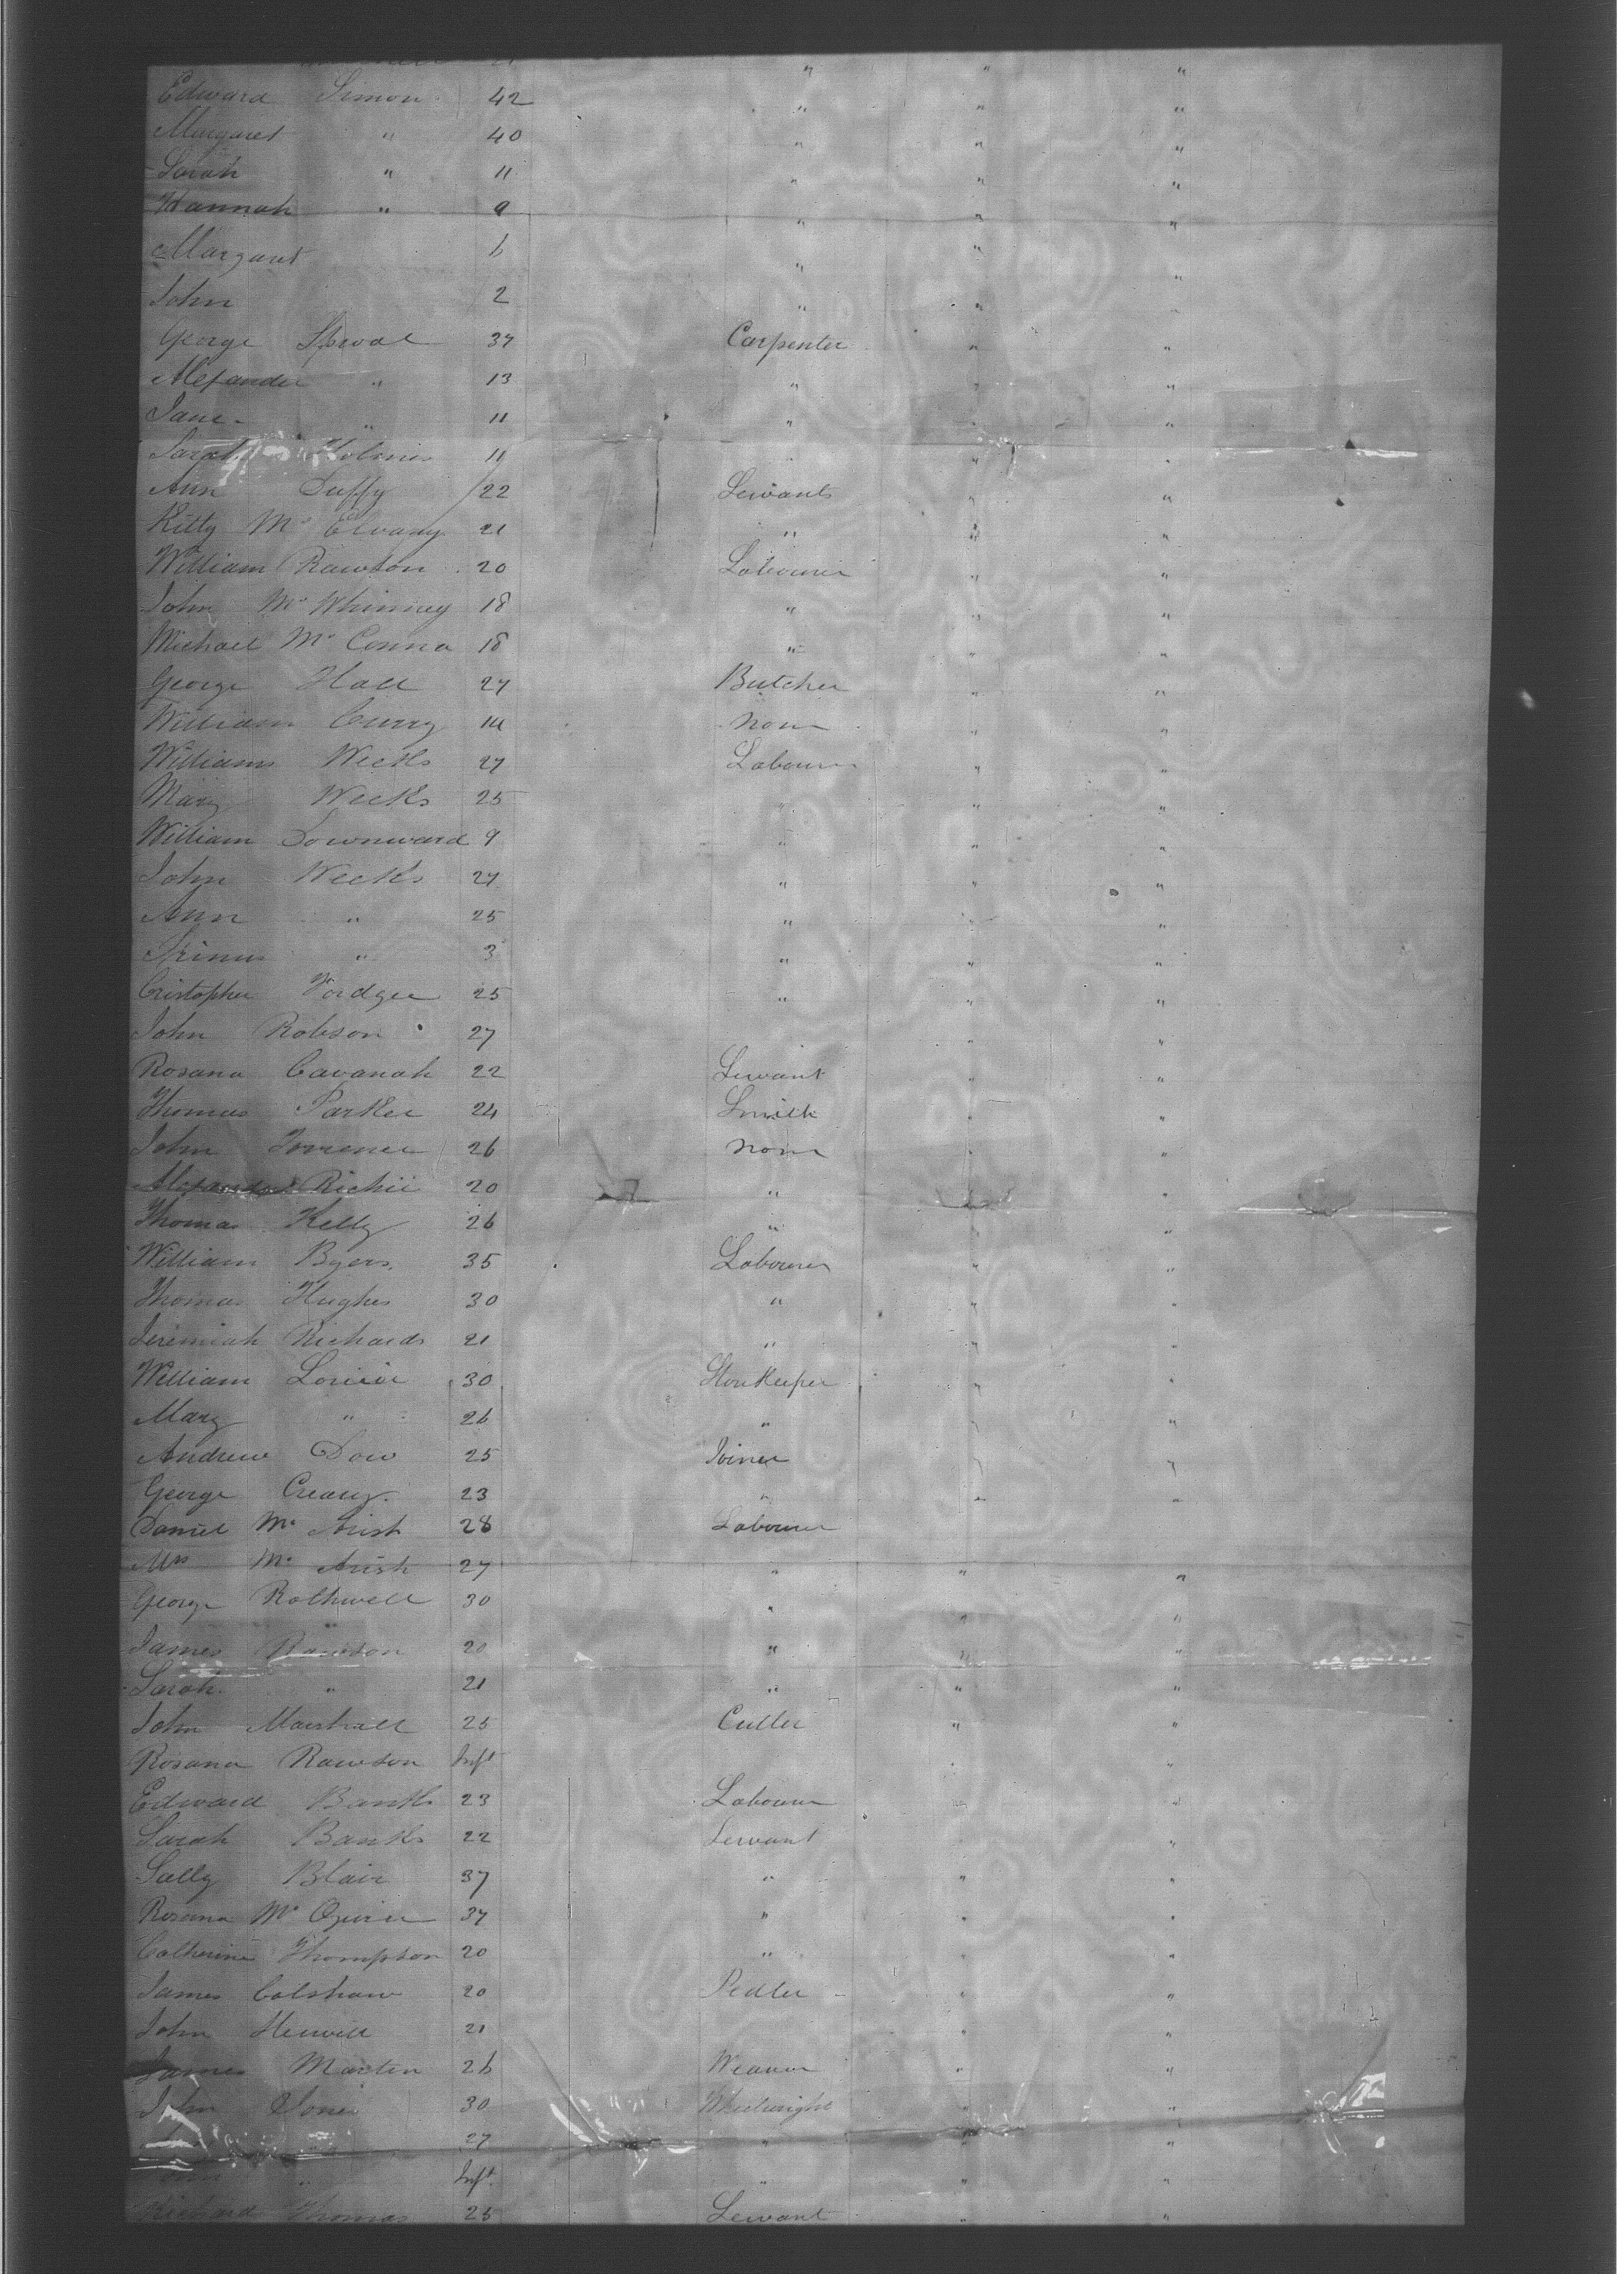 21 " " "
Edward Simon 42 " " "
Margaret " 40 " " "
Sarah " 11 " " "
Hannah " 9 " "
Margaret 6 " "
John 2 " "
George 37 Carpenter " "
Alexander " 13 " " "
Jane " 11 " " "
Sarah Holmes 11 " " "
Ann Duffy 22 Servants " "
Kitty Mc 21 " " "
William Rawson 20 Labourer " "
John Mc Whinney 18 " " "
Michael Mc Conna 18 " " "
George Hall 27 Butcher " "
William Curry 14 None " "
William Weeks 27 Labourer " "
Mary Weeks 25 " " "
William Downward 9 " " "
John Weeks 27 " " "
Ann " 25 " " "
" 3 " " "
Cristopher 25 " " "
John Robson 27 " "
Rosana Cavanah 22 Servant " "
Thomas Parker 24 Smith " "
John 26 None " "
Alexander Richie 20 " " "
Thomas Kelly 26 " " "
William Byers 35 Labourer " "
Thomas Hughes 30 " " "
Jeremiah Richards 21 " " "
William 30 Storekeeper " "
Mary " 26 " " "
Andrew Dow 25 Joiner " "
George Creany 23 " " "
Daniel Mc 28 Labourer
Mrs Mc 27 " " "
George Rothwell 30 " " "
James Rawson 20 " " "
Sarah " 21 " " "
John Marshall 25 Cutler " "
Rosana Rawson Inft " "
Edward Banks 23 Labourer " "
Sarah Banks 22 Servant " "
Sally Blair 37 " " "
Rosana Mc 37 " " "
Catherine Thompson 20 " " "
James Colshaw 20 Pedler " "
John 21 " "
James Martin 26 Weaver " "
John Jones 30 Wheelwright " "
27 " " "
" Inft " " "
Richard Thomas 25 Servant " "